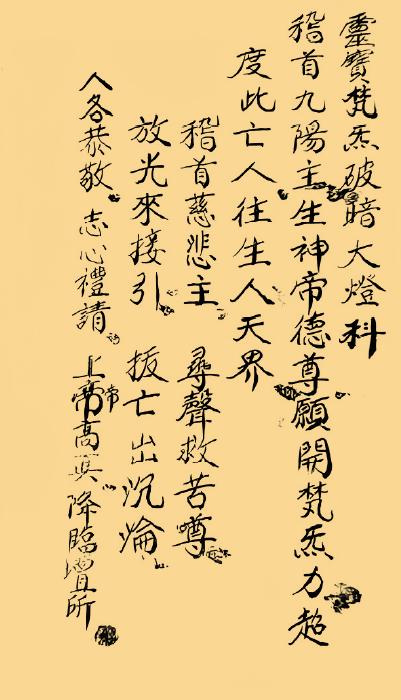 靈寶梵炁破暗大燈科
稽首九陽主生神帝德尊願開梵炁力超
度此亡人往生人天界
稽首慈悲主 尋聲救苦尊
放光來接引 拔亡出沉淪
人各恭敬 志心禮請 上帝高真降臨壇所